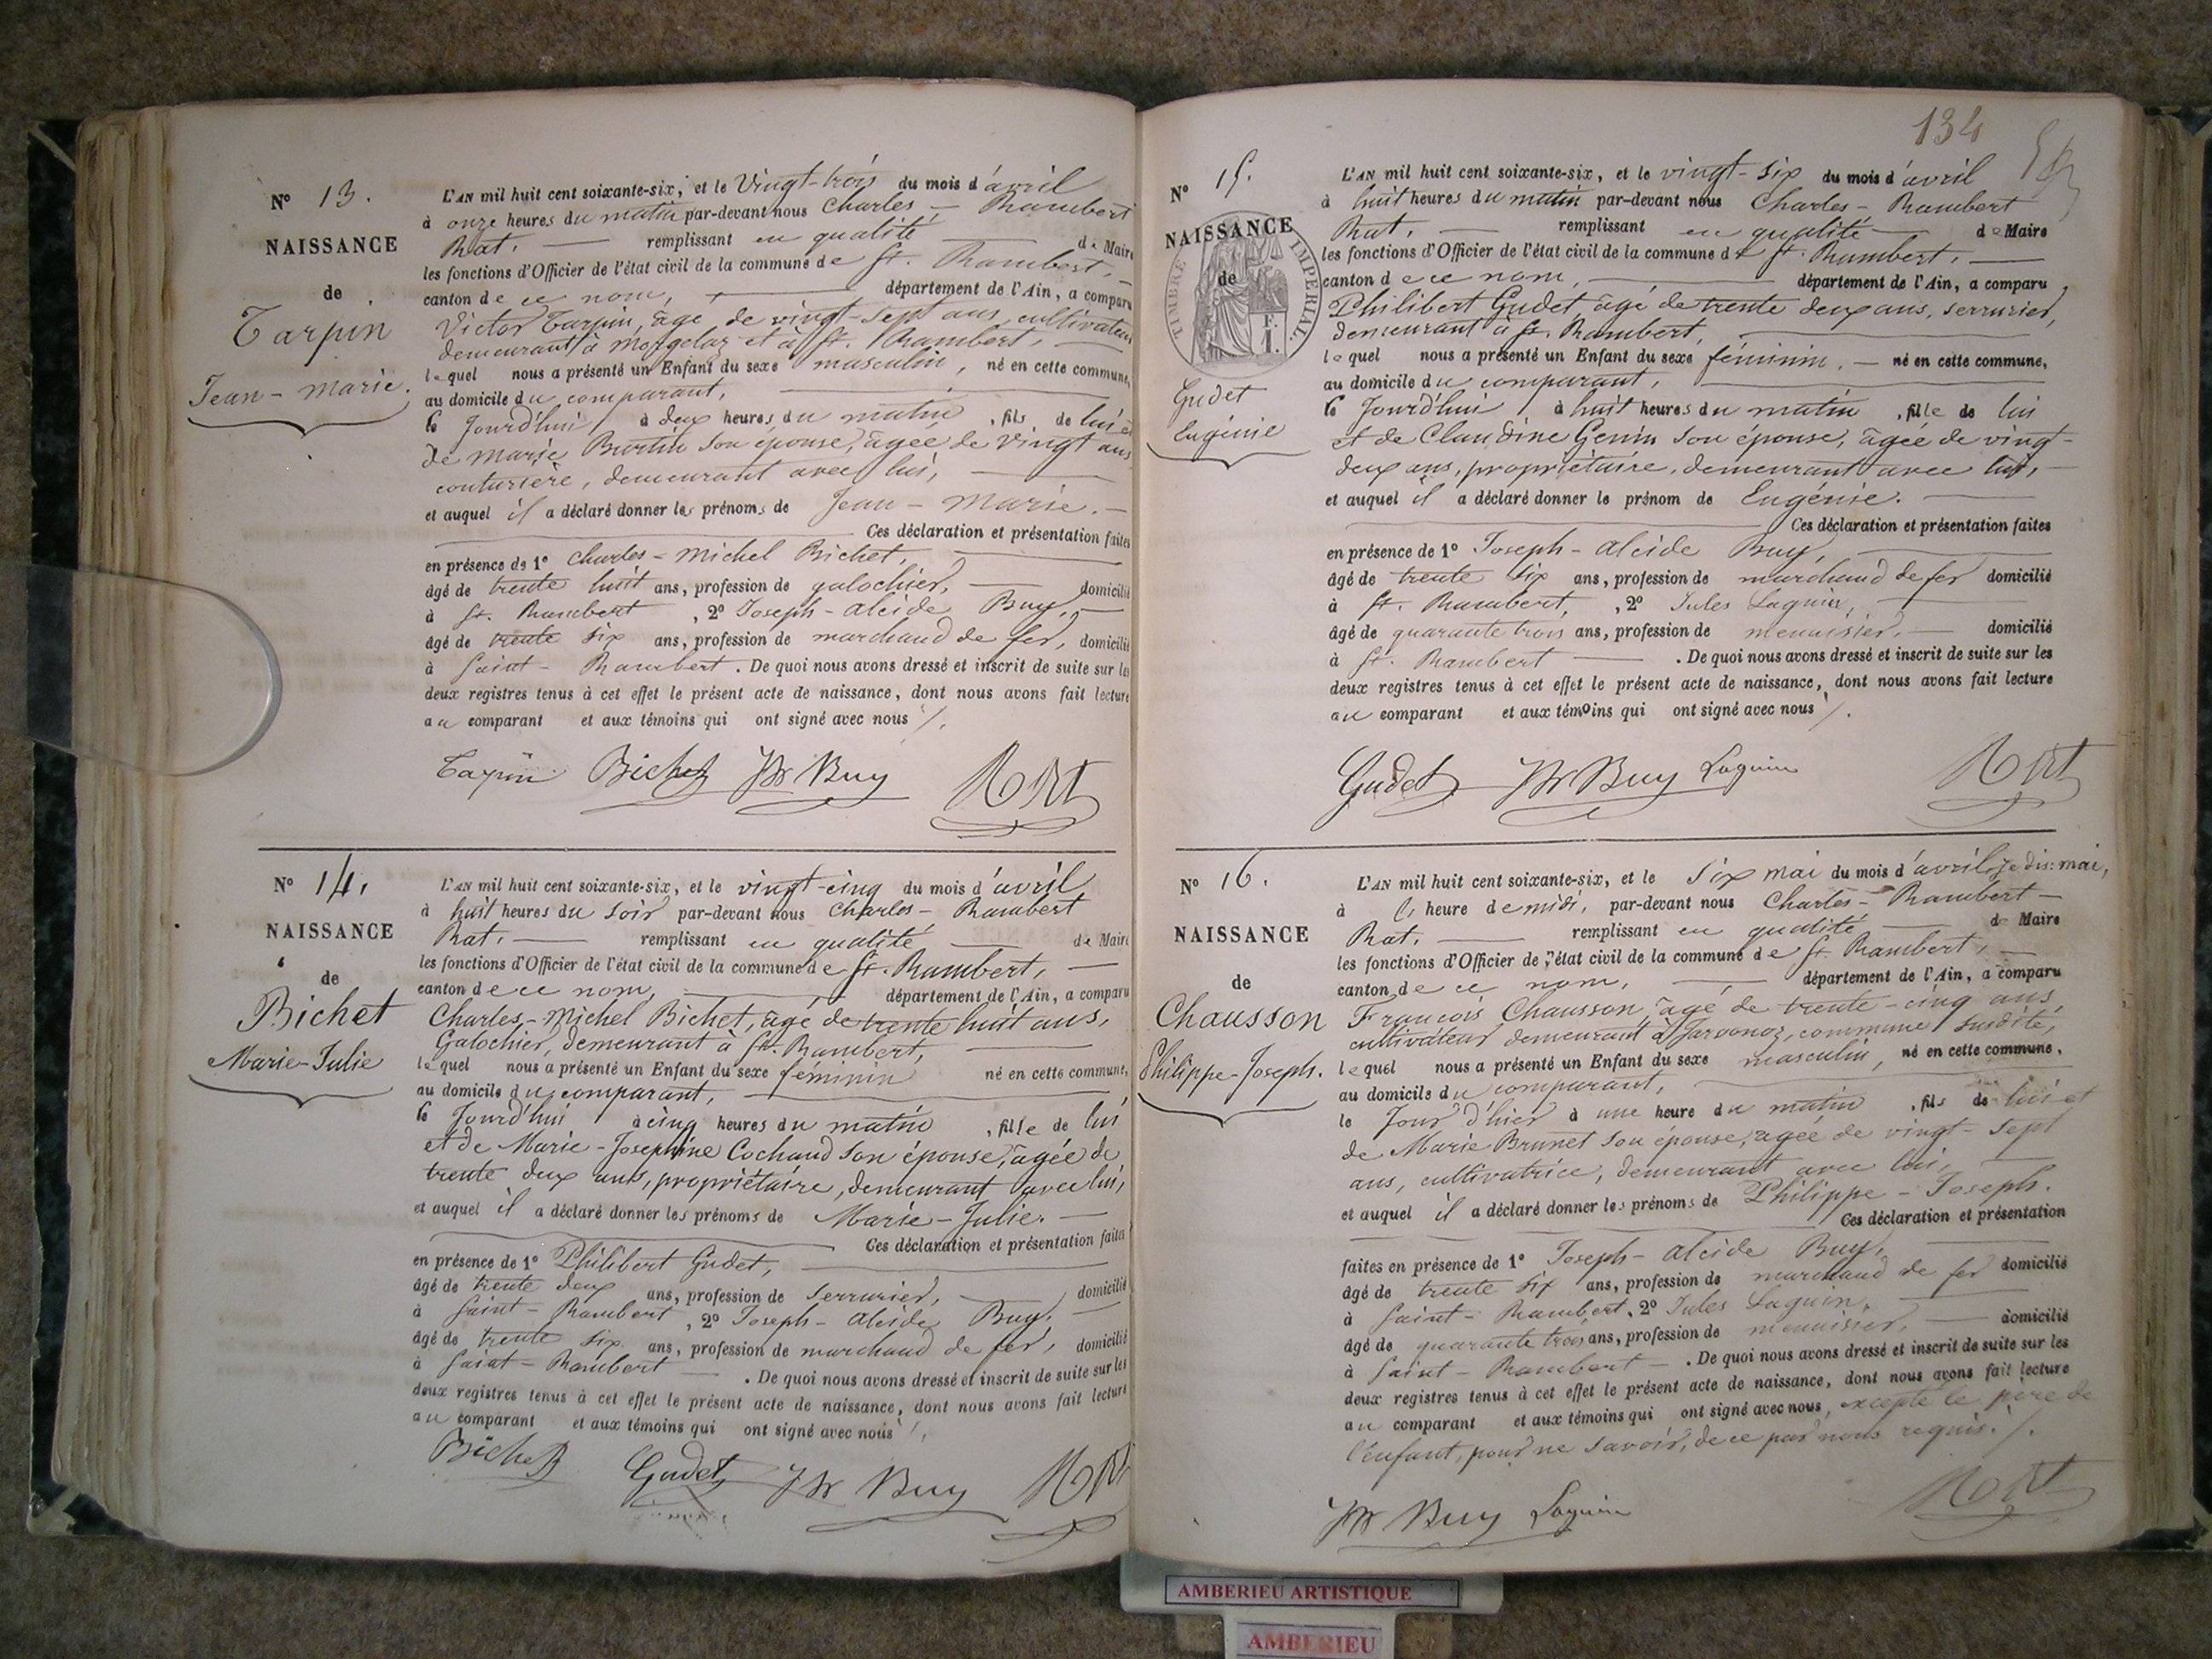 N° 13.
NAISSANCE
de
Tarpin
Jean-Marie.
L'AN mil huit cent soixante-six, et le Vingt-trois du mois d'avril
à onze heures du matin par-devant nous Charles - Rambert
Rat. remplissant en qualité de Maire
les fonctions d'Officier de l'état civil de la commune de St. Rambert,
canton de ce nom, département de l'Ain, a comparu
Victor Tarpin, âgé de vingt-sept ans, cultivateur
demeurant à Morgelaz et à St. Rambert,
lequel nous a présenté un Enfant du sexe masculin, né en cette commune,
au domicile du comparant,
le Jourd'hui à deux heures du matin, fils de lui et
de Marie Burtin son épouse, âgée de vingt ans
couturière, demeurant avec lui,
et auquel il a déclaré donner les prénoms de Jean - Marie.
Ces déclaration et présentation faites
en présence de 1° Charles - Michel Bichet,
âgé de trente huit ans, profession de galochier, domicilié
à St. Rambert, 2° Joseph - Alcide Buy,
âgé de trente six ans, profession de marchand de fer, domicilié
à Saint - Rambert. De quoi nous avons dressé et inscrit de suite sur les
deux registres tenus à cet effet le présent acte de naissance, dont nous avons fait lecture
au comparant et aux témoins qui ont signé avec nous /.
Tarpin Bichet Buy Rat
N° 14.
NAISSANCE
de
Bichet
Marie-Julie
L'AN mil huit cent soixante-six, et le vingt-cinq du mois d'avril
à huit heures du soir par-devant nous Charles - Rambert
Rat. remplissant en qualité de Maire
les fonctions d'Officier de l'état civil de la commune de St. Rambert,
canton de ce nom, département de l'Ain, a comparu
Charles - Michel Bichet, âgé de trente huit ans,
Galochier, demeurant à St. Rambert,
lequel nous a présenté un Enfant du sexe féminin né en cette commune,
au domicile du comparant,
le Jourd'hui à cinq heures du matin, fille de lui
et de Marie - Josephine Cochaud son épouse, âgée de
trente deux ans, propriétaire, demeurant avec lui,
et auquel il a déclaré donner les prénoms de Marie - Julie.
Ces déclaration et présentation faites
en présence de 1° Philibert Gudet,
âgé de trente deux ans, profession de serrurier, domicilié
à Saint - Rambert, 2° Joseph - Alcide Buy,
âgé de trente six ans, profession de marchand de fer, domicilié
à Saint - Rambert. De quoi nous avons dressé et inscrit de suite sur les
deux registres tenus à cet effet le présent acte de naissance, dont nous avons fait lecture
au comparant et aux témoins qui ont signé avec nous /.
Bichet Gudet Buy Rat
134
N° 15.
NAISSANCE
de
TIMBRE IMPERIAL.
F.
1.
Gudet
Eugénie
L'AN mil huit cent soixante-six, et le vingt-six du mois d'avril
à huit heures du matin par-devant nous Charles - Rambert
Rat. remplissant en qualité de Maire
les fonctions d'Officier de l'état civil de la commune de St. Rambert,
canton de ce nom, département de l'Ain, a comparu
Philibert Gudet, âgé de trente deux ans, serrurier,
demeurant à St. Rambert,
lequel nous a présenté un Enfant du sexe féminin, né en cette commune,
au domicile du comparant,
le Jourd'hui à huit heures du matin, fille de lui
et de Claudine Genin son épouse, âgée de vingt-
deux ans, propriétaire, demeurant avec lui,
et auquel il a déclaré donner le prénom de Eugénie.
Ces déclaration et présentation faites
en présence de 1° Joseph - Alcide Buy,
âgé de trente six ans, profession de marchand de fer domicilié
à St. Rambert, 2° Jules Laguin,
âgé de quarante trois ans, profession de menuisier, domicilié
à St. Rambert. De quoi nous avons dressé et inscrit de suite sur les
deux registres tenus à cet effet le présent acte de naissance, dont nous avons fait lecture
au comparant et aux témoins qui ont signé avec nous /.
Gudet Buy Laguin Rat
N° 16.
NAISSANCE
de
Chausson
Philippe-Joseph.
L'AN mil huit cent soixante-six, et le Six mai du mois d'avril, je dis: mai,
à l' heure de midi, par-devant nous Charles - Rambert
Rat. remplissant en qualité de Maire
les fonctions d'Officier de l'état civil de la commune de St. Rambert,
canton de ce nom, département de l'Ain, a comparu
François Chausson, âgé de trente-cinq ans,
cultivateur demeurant à Javornoz, commune susdite,
lequel nous a présenté un Enfant du sexe masculin, né en cette commune,
au domicile du comparant,
le Jour d'hier à une heure du matin, fils de lui et
de Marie Brunet son épouse, âgée de vingt-sept
ans, cultivatrice, demeurant avec lui,
et auquel il a déclaré donner les prénoms de Philippe - Joseph.
Ces déclaration et présentation
faites en présence de 1° Joseph - Alcide Buy,
âgé de trente six ans, profession de marchand de fer domicilié
à Saint - Rambert, 2° Jules Laguin,
âgé de quarante trois ans, profession de menuisier, domicilié
à Saint - Rambert. De quoi nous avons dressé et inscrit de suite sur les
deux registres tenus à cet effet le présent acte de naissance, dont nous avons fait lecture
au comparant et aux témoins qui ont signé avec nous, excepté le père de
l'enfant, pour ne savoir, de ce par nous requis. /.
Buy Laguin Rat
AMBERIEU ARTISTIQUE
AMBERIEU